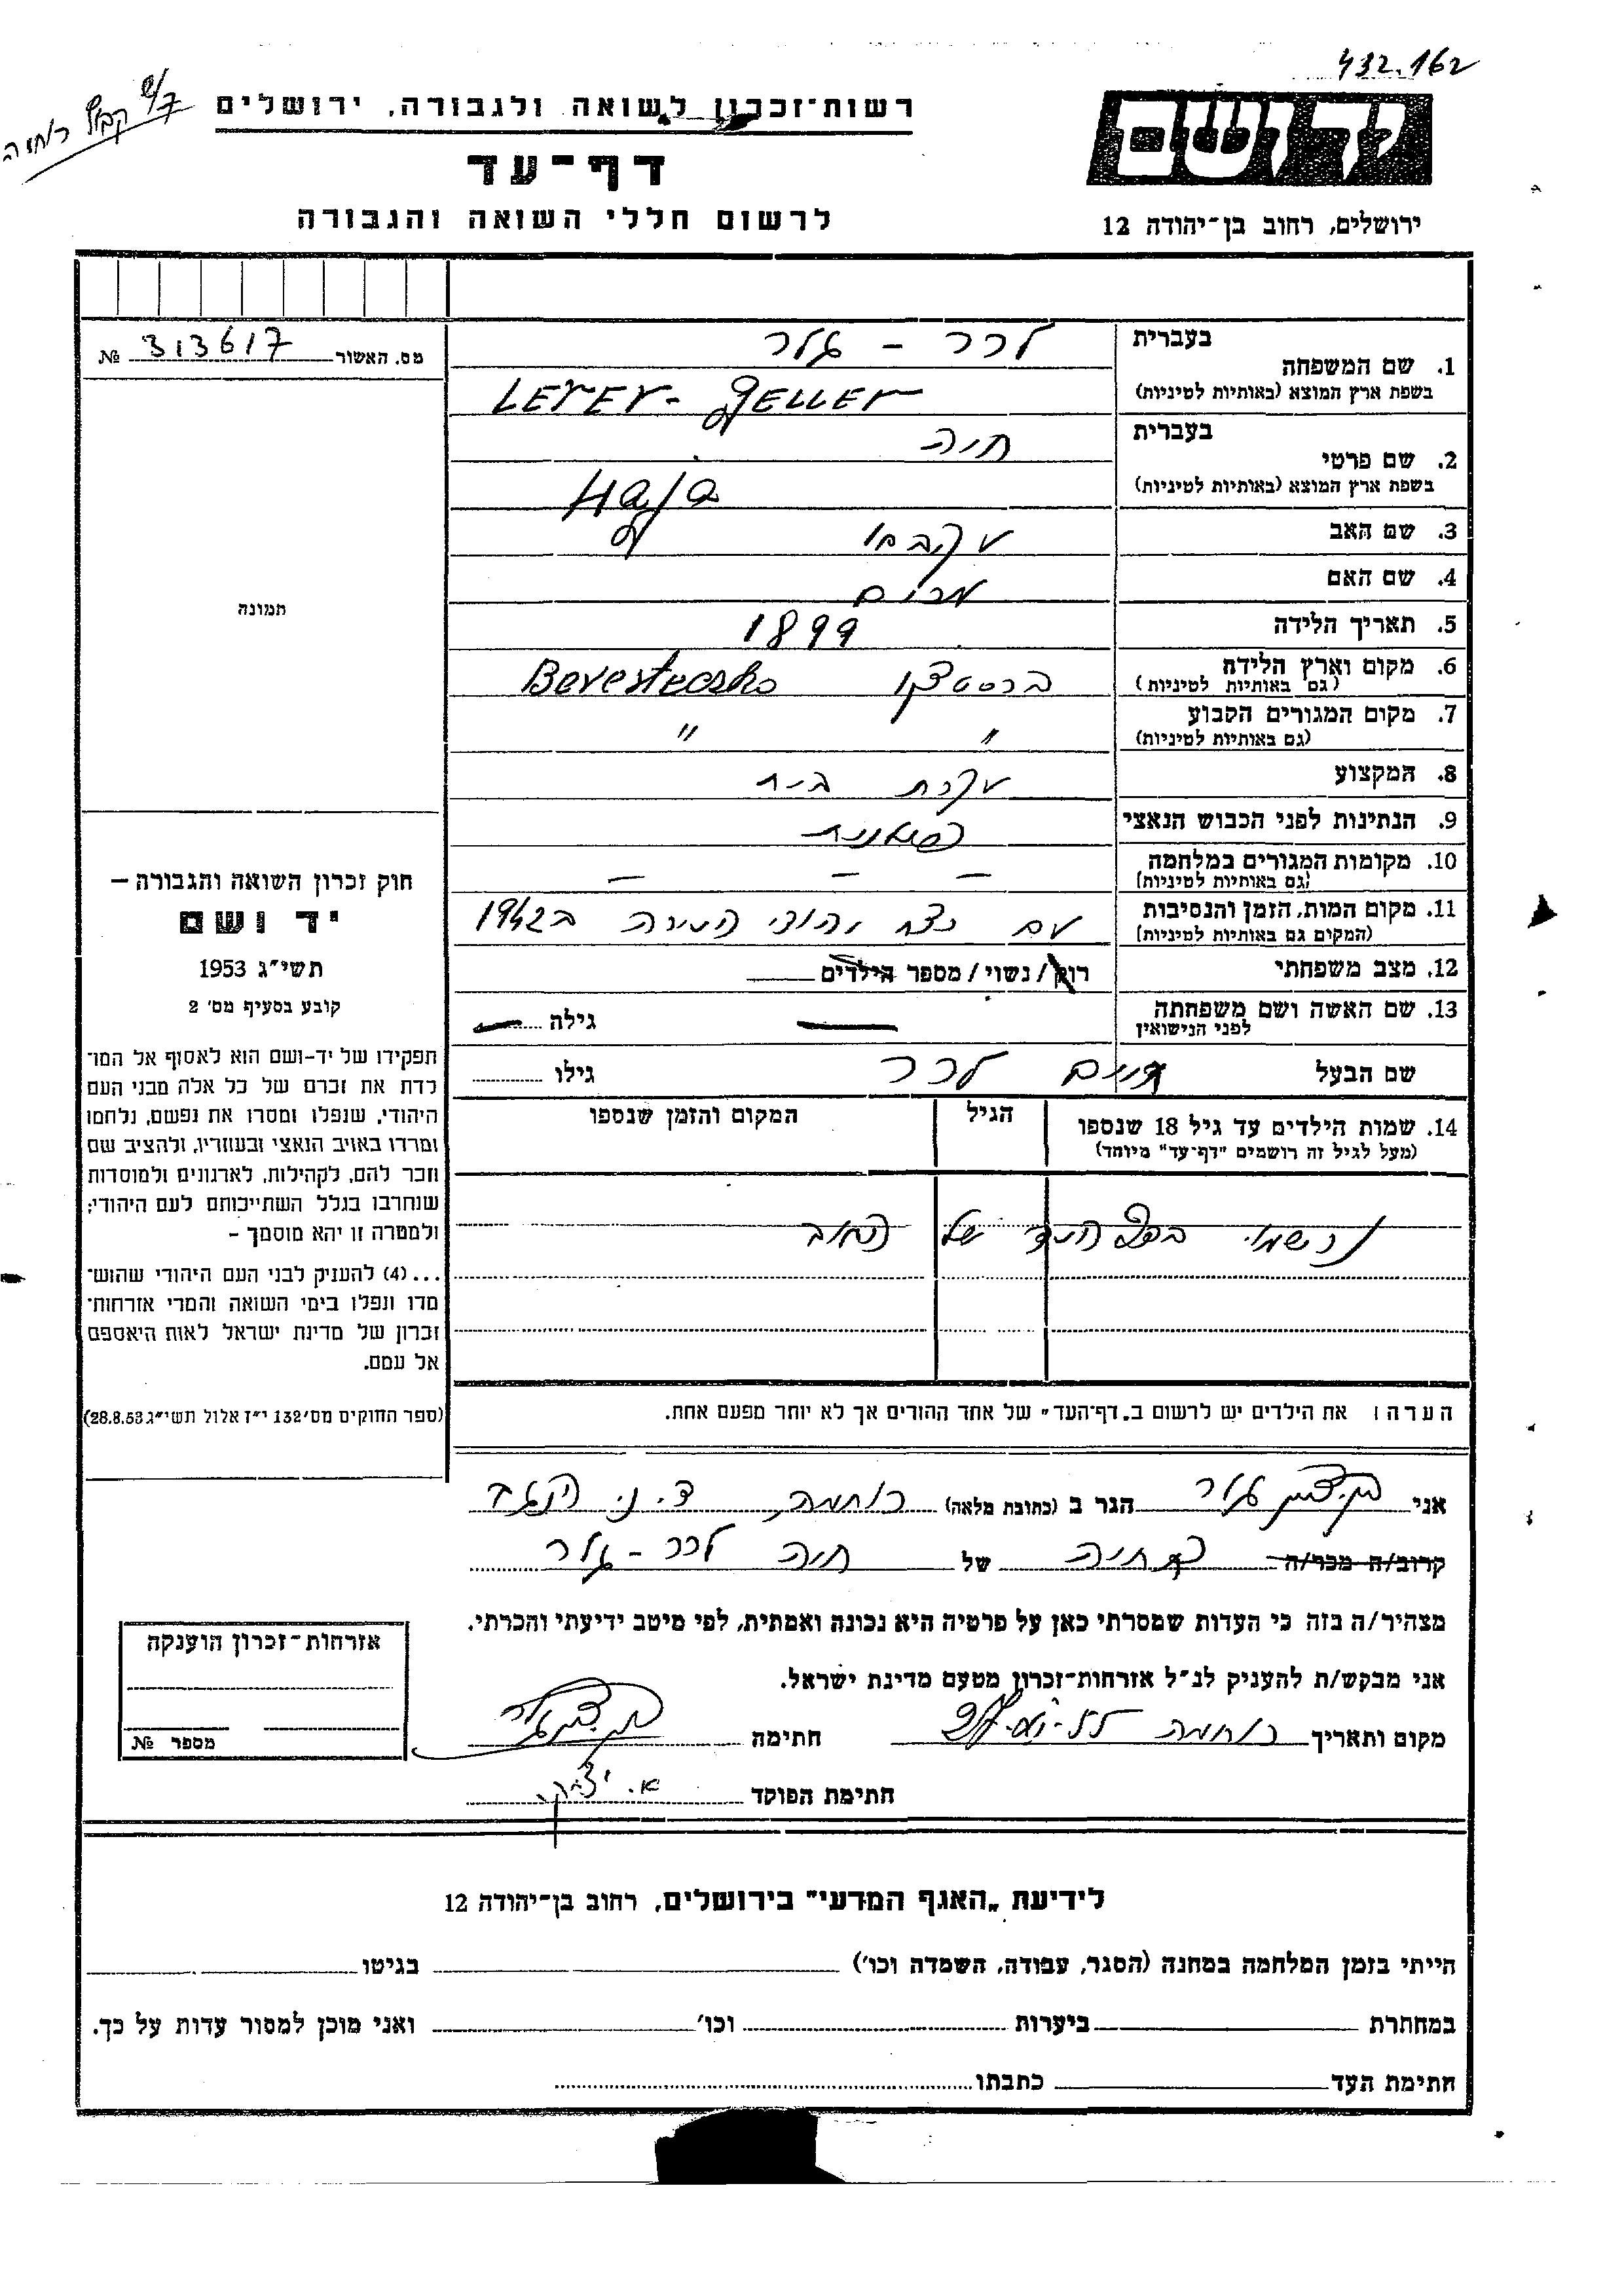 432.162
רשות-זכרון לשואה ולגבורה, ירושלים
דף-עד
לרשום חללי השואה והגבורה
יד ושם
ירושלים, רחוב בן-יהודה 12
מס. האשור 313617 №
תמונה
חוק זכרון השואה והגבורה –
יד ושם
תשי״ג 1953
קובע בסעיף מס׳ 2
תפקידו של יד-ושם הוא לאסוף אל המו־
לדת את זכרם של כל אלה מבני העם
היהודי, שנפלו ומסרו את נפשם, נלחמו
ומרדו באויב הנאצי ובעוזריו, ולהציב שם
וזכר להם, לקהילות, לארגונים ולמוסדות
שנחרבו בגלל השתייכותם לעם היהודי;
ולמטרה זו יהא מוסמך –
...(4) להעניק לבני העם היהודי שהוש־
מדו ונפלו בימי השואה והמרי אזרחות־
זכרון של מדינת ישראל לאות היאספם
אל עמם.
(ספר החוקים מס׳ 132 י״ז אלול תשי״ג 28.8.53)
בעברית לרר - גלר
1. שם המשפחה
בשפת ארץ המוצא (באותיות לטיניות) Lerer - Geller
בעברית חיה
2. שם פרטי
בשפת ארץ המוצא (באותיות לטיניות) Haja
3. שם האב
4. שם האם מרים
5. תאריך הלידה 1899
6. מקום וארץ הלידה ברסטצקו Beresteczko
(גם באותיות לטיניות)
7. מקום המגורים הקבוע ״ ״
(גם באותיות לטיניות)
8. המקצוע עקרת בית
9. הנתינות לפני הכבוש הנאצי
10. מקומות המגורים במלחמה – – –
(גם באותיות לטיניות)
11. מקום המות, הזמן והנסיבות עם יהודי העירה ב 1942
(המקום גם באותיות לטיניות)
12. מצב משפחתי רווק / נשוי / מספר הילדים
13. שם האשה ושם משפחתה — גילה —
לפני הנישואין
שם הבעל חיים לרר גילו
14. שמות הילדים עד גיל 18 שנספו הגיל המקום והזמן שנספו
(מעל לגיל זה רושמים "דף-עד" מיוחד)
נרשמו בדף העד של האב
הערה: את הילדים יש לרשום ב„דף-העד״ של אחד ההורים אך לא יותר מפעם אחת.
אני גלר הגר ב (כתובת מלאה) רוחמה ד.נ. הנגב
קרוב/ה מכר/ה של חיה לרר - גלר
מצהיר/ה בזה כי העדות שמסרתי כאן על פרטיה היא נכונה ואמתית, לפי מיטב ידיעתי והכרתי.
אני מבקש/ת להעניק לנ״ל אזרחות-זכרון מטעם מדינת ישראל.
מקום ותאריך רוחמה חתימה
חתימת הפוקד
אזרחות-זכרון הוענקה
מספר №
לידיעת „האגף המדעי״ בירושלים, רחוב בן-יהודה 12
הייתי בזמן המלחמה במחנה (הסגר, עבודה, השמדה וכו׳) בגיטו
במחתרת ביערות וכו׳ ואני מוכן למסור עדות על כך.
חתימת העד כתבתו